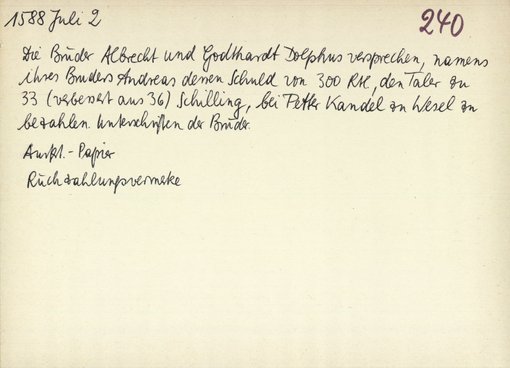 1588 Juli 2
240
Die Brüder Albrecht und Godthardt Dolphus versprechen, namens
ihres Bruders Andreas dessen Schuld von 300 Rtl, den Taler zu
33 (verbessert aus 36) Schilling, bei Petter Kandel zu Wesel zu
bezahlen. Unterschriften der Brüder.
Ausf.- Papier
Rückzahlungsvermerke